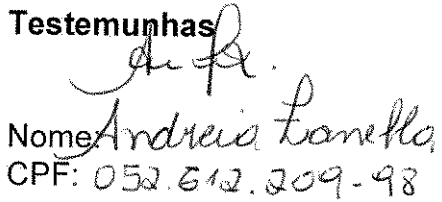 Testemunhas
Nome: Andreia Zanella
CPF: 052.612.209-98